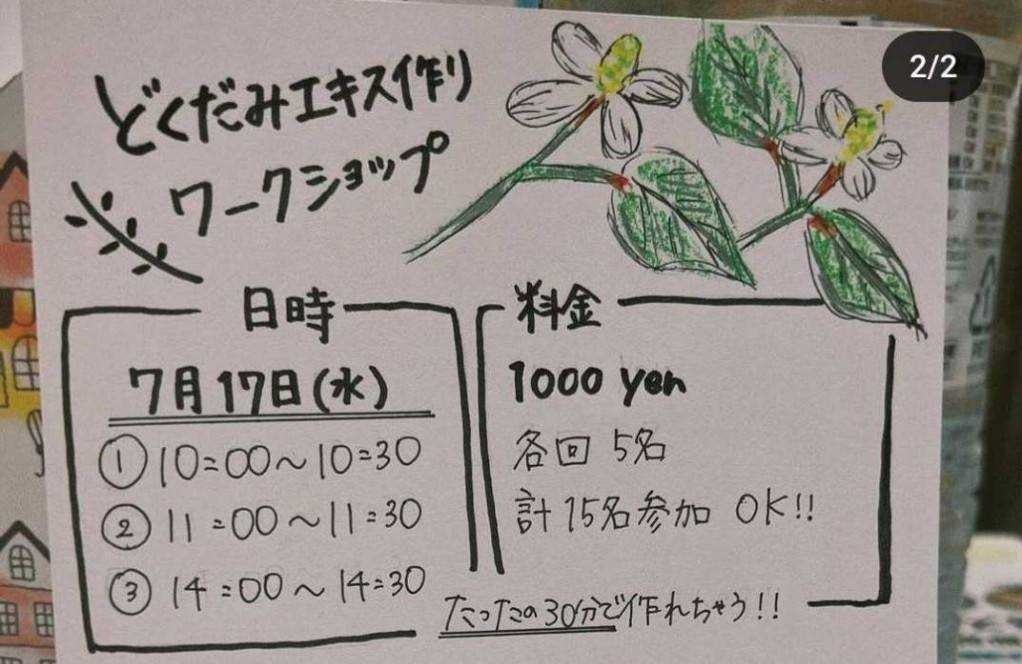 2/2
どくだみエキス作り
ワークショップ
日時
7月17日(水)
① 10:00〜10:30
② 11:00〜11:30
③ 14:00〜14:30
料金
1000 yen
各回 5名
計15名参加 OK!!
たったの30分で作れちゃう!!